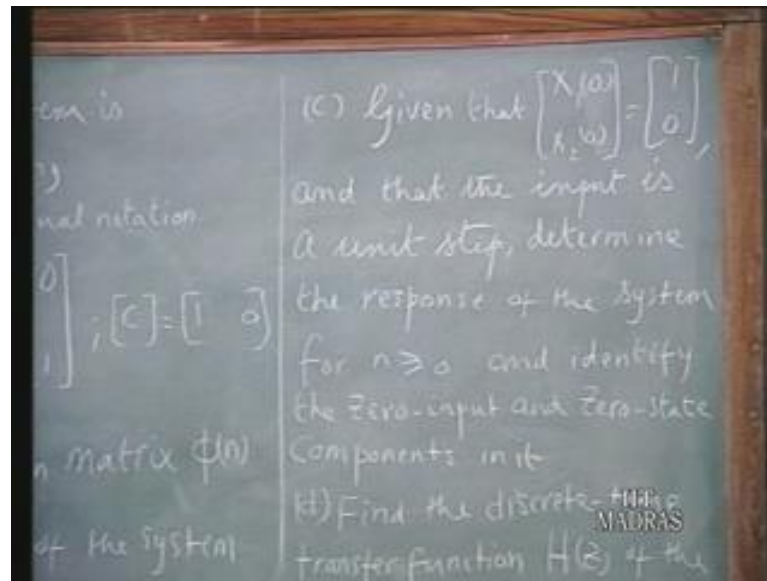 em is
nal notation
0
1
; [C] = [1 0]
n matrix φ(n)
of the system
(C) Given that [X₁(0) X₂(0)] = [1 0],
and that the input is
a unit step, determine
the response of the system
for n ≥ 0 and identify
the Zero-input and Zero-state
Components in it
(d) Find the discrete-time
transfer function H(Z) of the
IIT
MADRAS